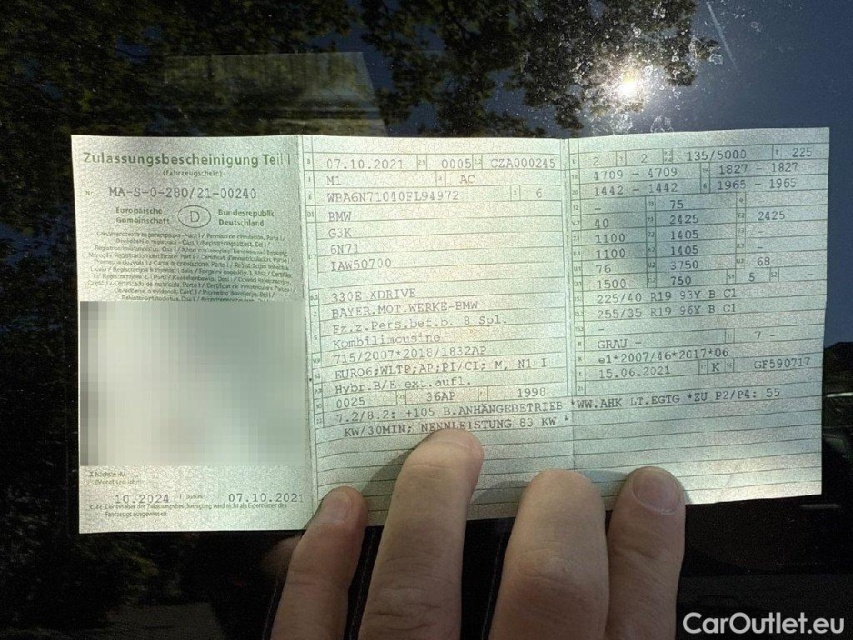 Zulassungsbescheinigung Teil I
(Fahrzeugschein)
MA-S-0-280/21-00240
Europäische
Gemeinschaft
D
Bundesrepublik
Deutschland
10.2024
07.10.2021
07.10.2021 0005 CZA000245
M1 AC
6
BMW
G3K
6N71
IAW50700
330E XDRIVE
BAYER.MOT.WERKE-BMW
Fz.z.Pers.bef.b. 8 Spl.
Kombilimousine
715/2007*2018/1832AP
EURO6;WLTP;AP;PI/CI; M, N1 I
Hybr.B/E ext.aufl.
0025 36AP 1998
7.2/8.2: +105 B.ANHÄNGEBETRIEB *WW.AHK LT.EGTG *ZU P2/P4: 55
KW/30MIN; NENNLEISTUNG 83 KW *
2 2 135/5000 225
4709 - 4709 1827 - 1827
1442 - 1442 1965 - 1965
- 75
40 2425 2425
1100 1405
1100 1405 -
76 3750 68
1500 750 5
225/40 R19 93Y B C1
255/35 R19 96Y B C1
-
GRAU - 7 -
e1*2007/46*2017*06
15.06.2021 K GF590717
CarOutlet.eu